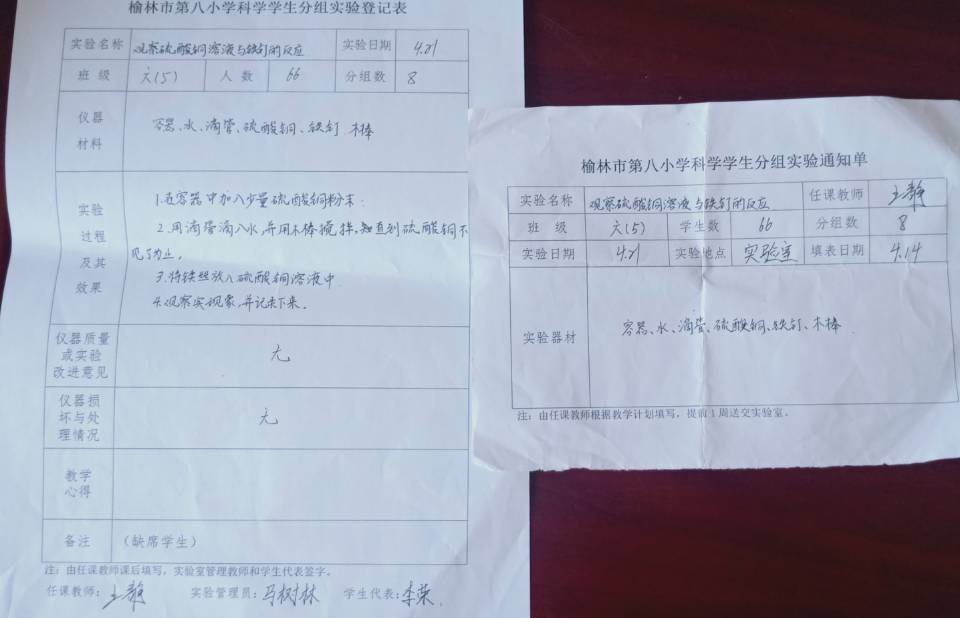 榆林市第八小学科学学生分组实验登记表
实验名称 观察硫酸铜溶液与铁钉的反应 实验日期 4.21
班 级 六(5) 人 数 66 分组数 8
仪器
材料
容器、水、滴管、硫酸铜、铁钉 木棒
实验
过程
及其
效果
1.在容器中加入少量硫酸铜粉末.
2.用滴管滴入水,并用木棒搅拌,知直到硫酸铜不
见为止.
3.将铁丝放入硫酸铜溶液中.
4.观察实现象,并记录下来.
仪器质量
或实验
改进意见
无
仪器损
坏与处
理情况
无
教学
心得
备注 (缺席学生)
注:由任课教师课后填写,实验室管理教师和学生代表签字。
任课教师:王静 实验管理员:马树林 学生代表:李荣
榆林市第八小学科学学生分组实验通知单
实验名称 观察硫酸铜溶液与铁钉的反应 任课教师 王静
班 级 六(5) 学生数 66 分组数 8
实验日期 4.21 实验地点 实验室 填表日期 4.14
实验器材 容器、水、滴管、硫酸铜、铁钉、木棒.
注:由任课教师根据教学计划填写,提前1周送交实验室。